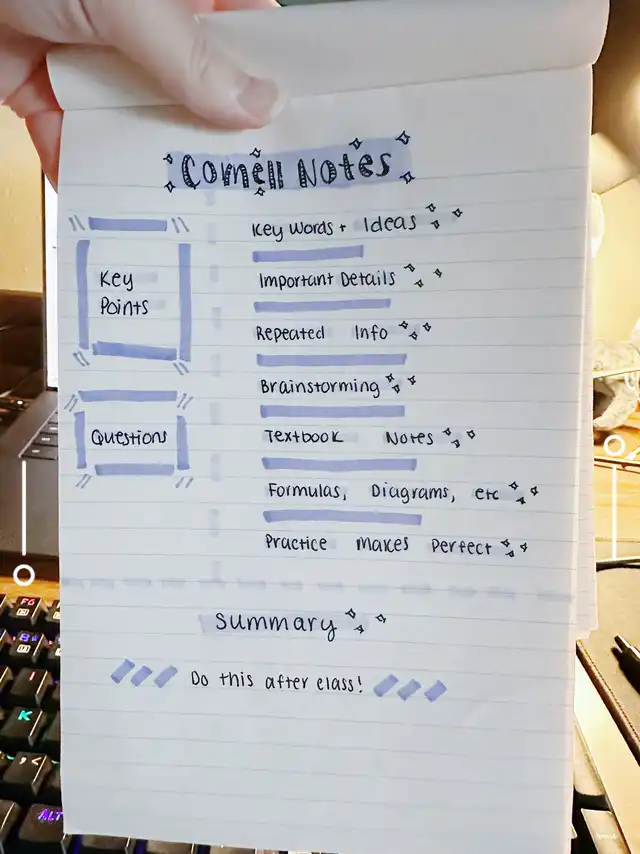 Cornell Notes
Key
Points
Questions
Key Words + Ideas
Important Details
Repeated Info
Brainstorming
Textbook Notes
Formulas, Diagrams, etc
Practice makes Perfect
Summary
Do this after class!
F6
K
ALT